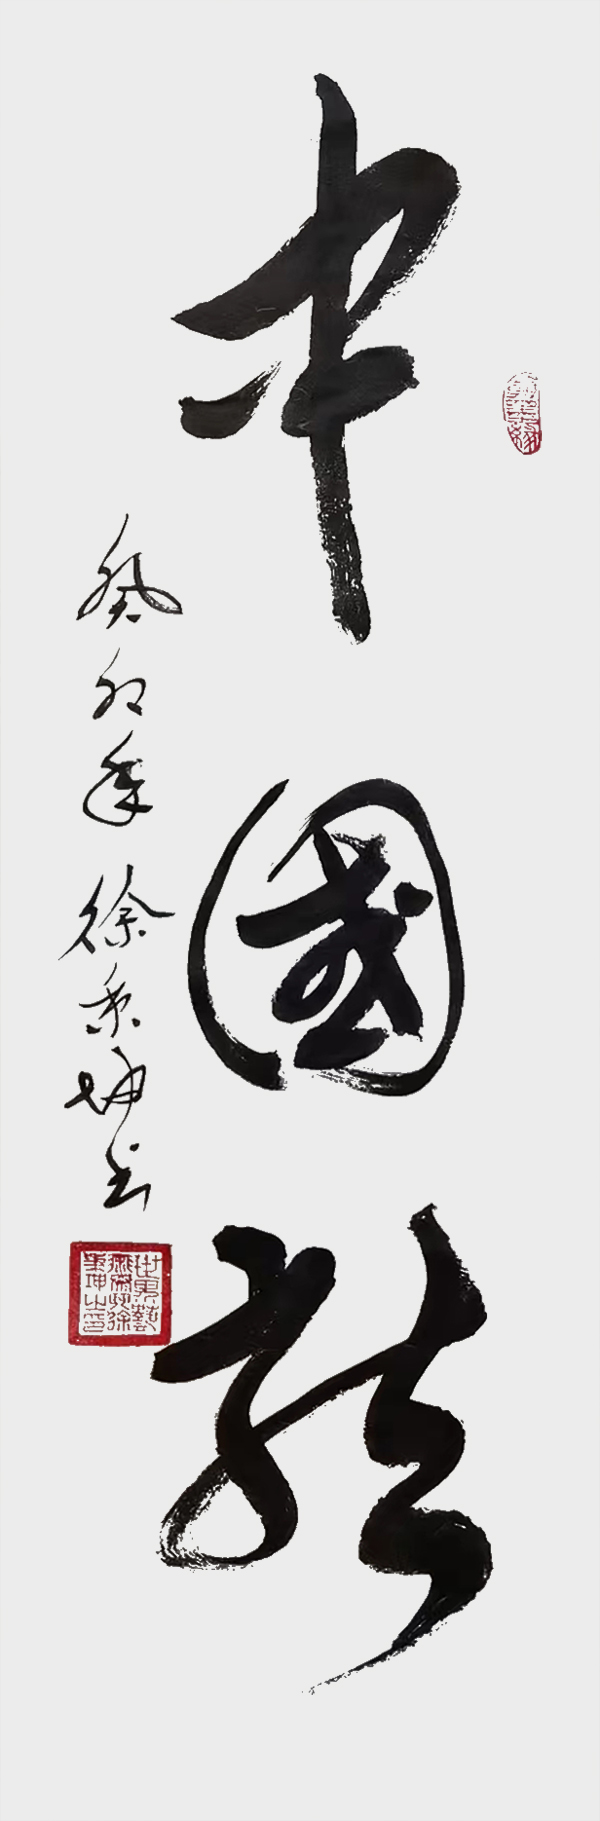 中國龍
癸卯年 徐秉坤书